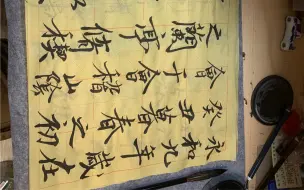 永和九年歲在
癸丑暮春之初
會于會稽山陰
之蘭亭脩禊